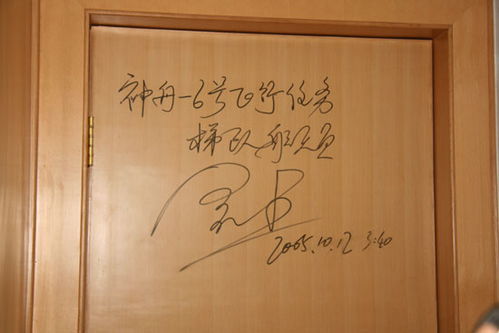 神舟-6号飞行任务
梯队航天员
2005.10.12 3:40